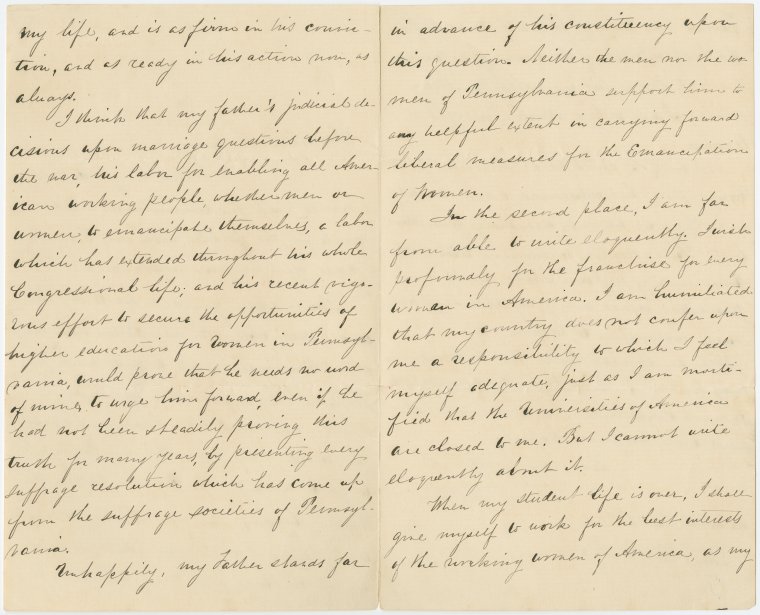 my life, and is as firm in his convic-
tion, and as ready in his action now, as
always.
I think that my father's judicial de-
cisions upon marriage questions before
the war, his labor for enabling all Amer-
ican working people, whether men or
women, to emancipate themselves, a labor
which has extended throughout his whole
Congressional life; and his recent vigo-
rous effort to secure the opportunities of
higher education for women in Pennsyl-
vania, would prove that he needs no word
of mine, to urge him forward, even if he
had not been steadily proving this
truth for many years, by presenting every
suffrage resolution which has come up
from the suffrage societies of Pennsyl-
vania.
Unhappily, my Father stands far
in advance of his constituency upon
this question. Neither the men nor the wo-
men of Pennsylvania support him to
any helpful extent in carrying forward
liberal measures for the Emancipation
of Women.
In the second place, I am far
from able to write eloquently. I wish
profoundly for the franchise for every
woman in America. I am humiliated
that my country does not confer upon
me a responsibility to which I feel
myself adequate, just as I am morti-
fied that the Universities of America
are closed to me. But I cannot write
eloquently about it.
When my student life is over, I shall
give myself to work for the best interests
of the working women of America, as my